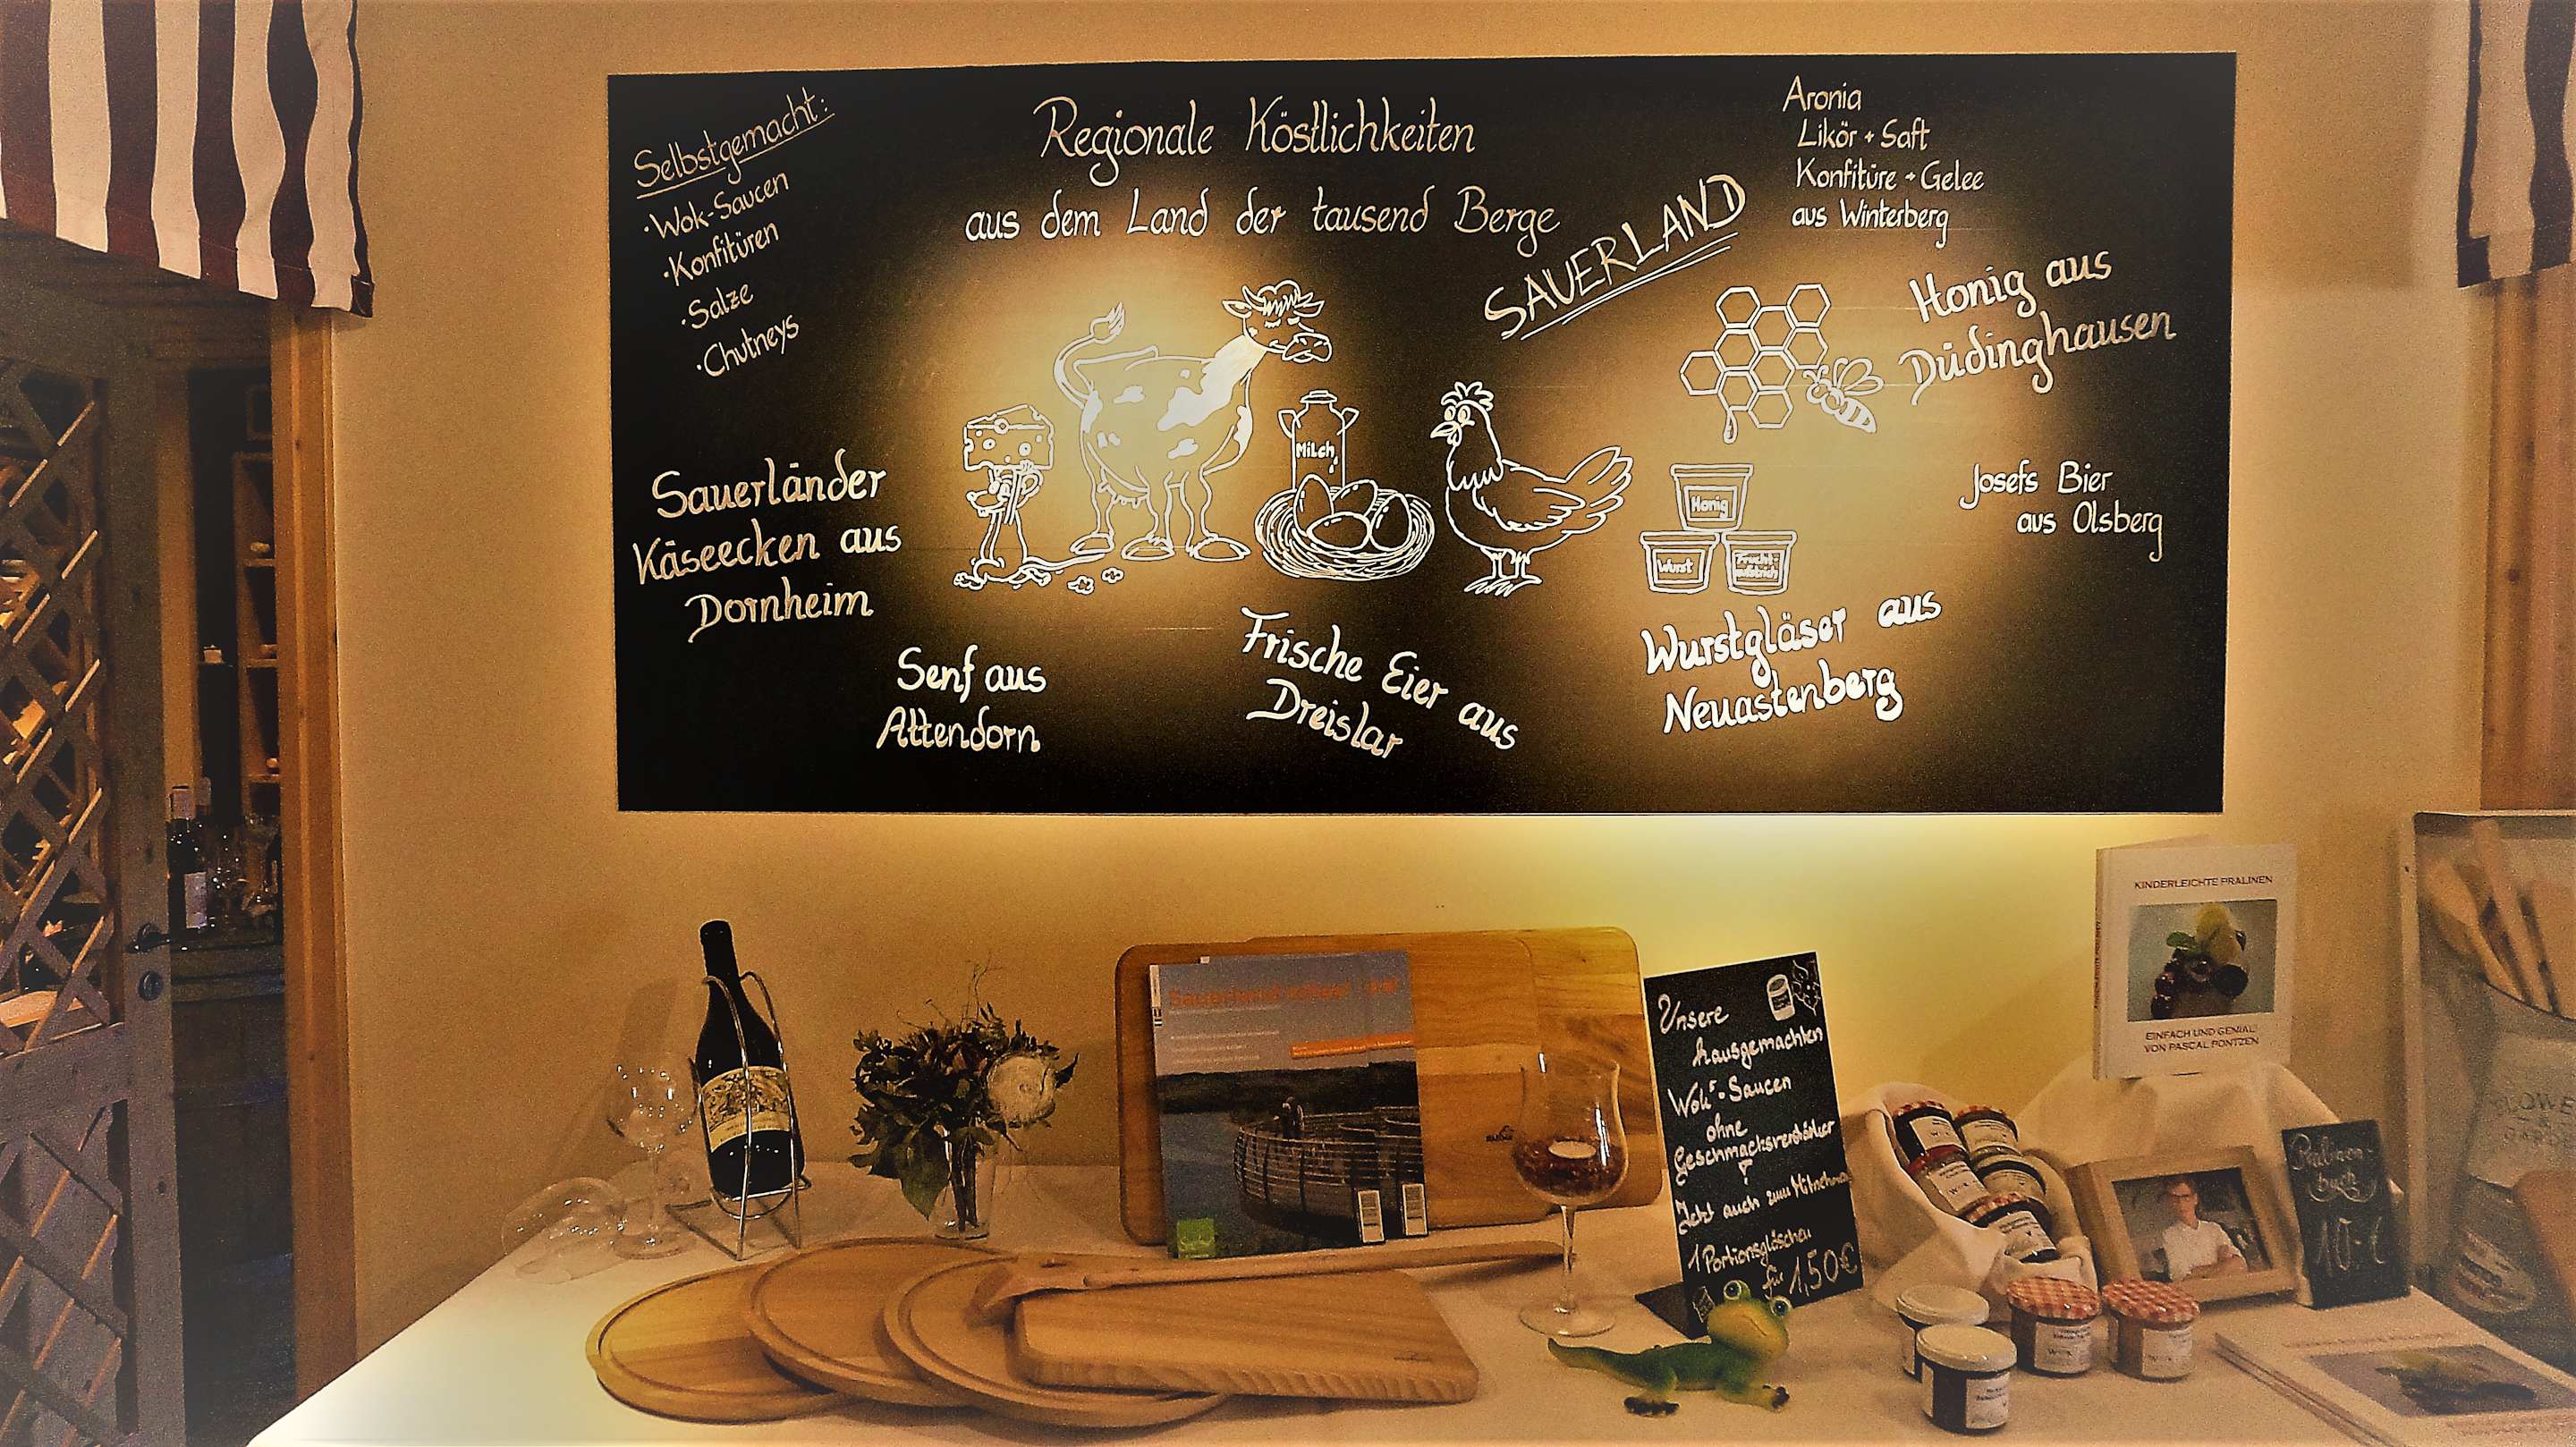 Selbstgemacht:
·Wok-Saucen
·Konfitüren
·Salze
·Chutneys
Regionale Köstlichkeiten
aus dem Land der tausend Berge
SAUERLAND
Aronia
Likör + Saft
Konfitüre + Gelee
aus Winterberg
Honig aus
Düdinghausen
Josefs Bier
aus Olsberg
Sauerländer
Käseecken aus
Dornheim
Milch
Honig
Wurst
Frucht-
aufstrich
Senf aus
Attendorn
Frische Eier aus
Dreislar
Wurstgläser aus
Neuastenberg
KINDERLEICHTE PRALINEN
EINFACH UND GENIAL!
VON PASCAL PONTZEN
Sauerland
Unsere
hausgemachten
Wok-Saucen
ohne
Geschmacksverstärker
Jetzt auch zum Mitnehmen
1 Portionsgläschen
für 1,50€
Pralinen-
buch
10,-€